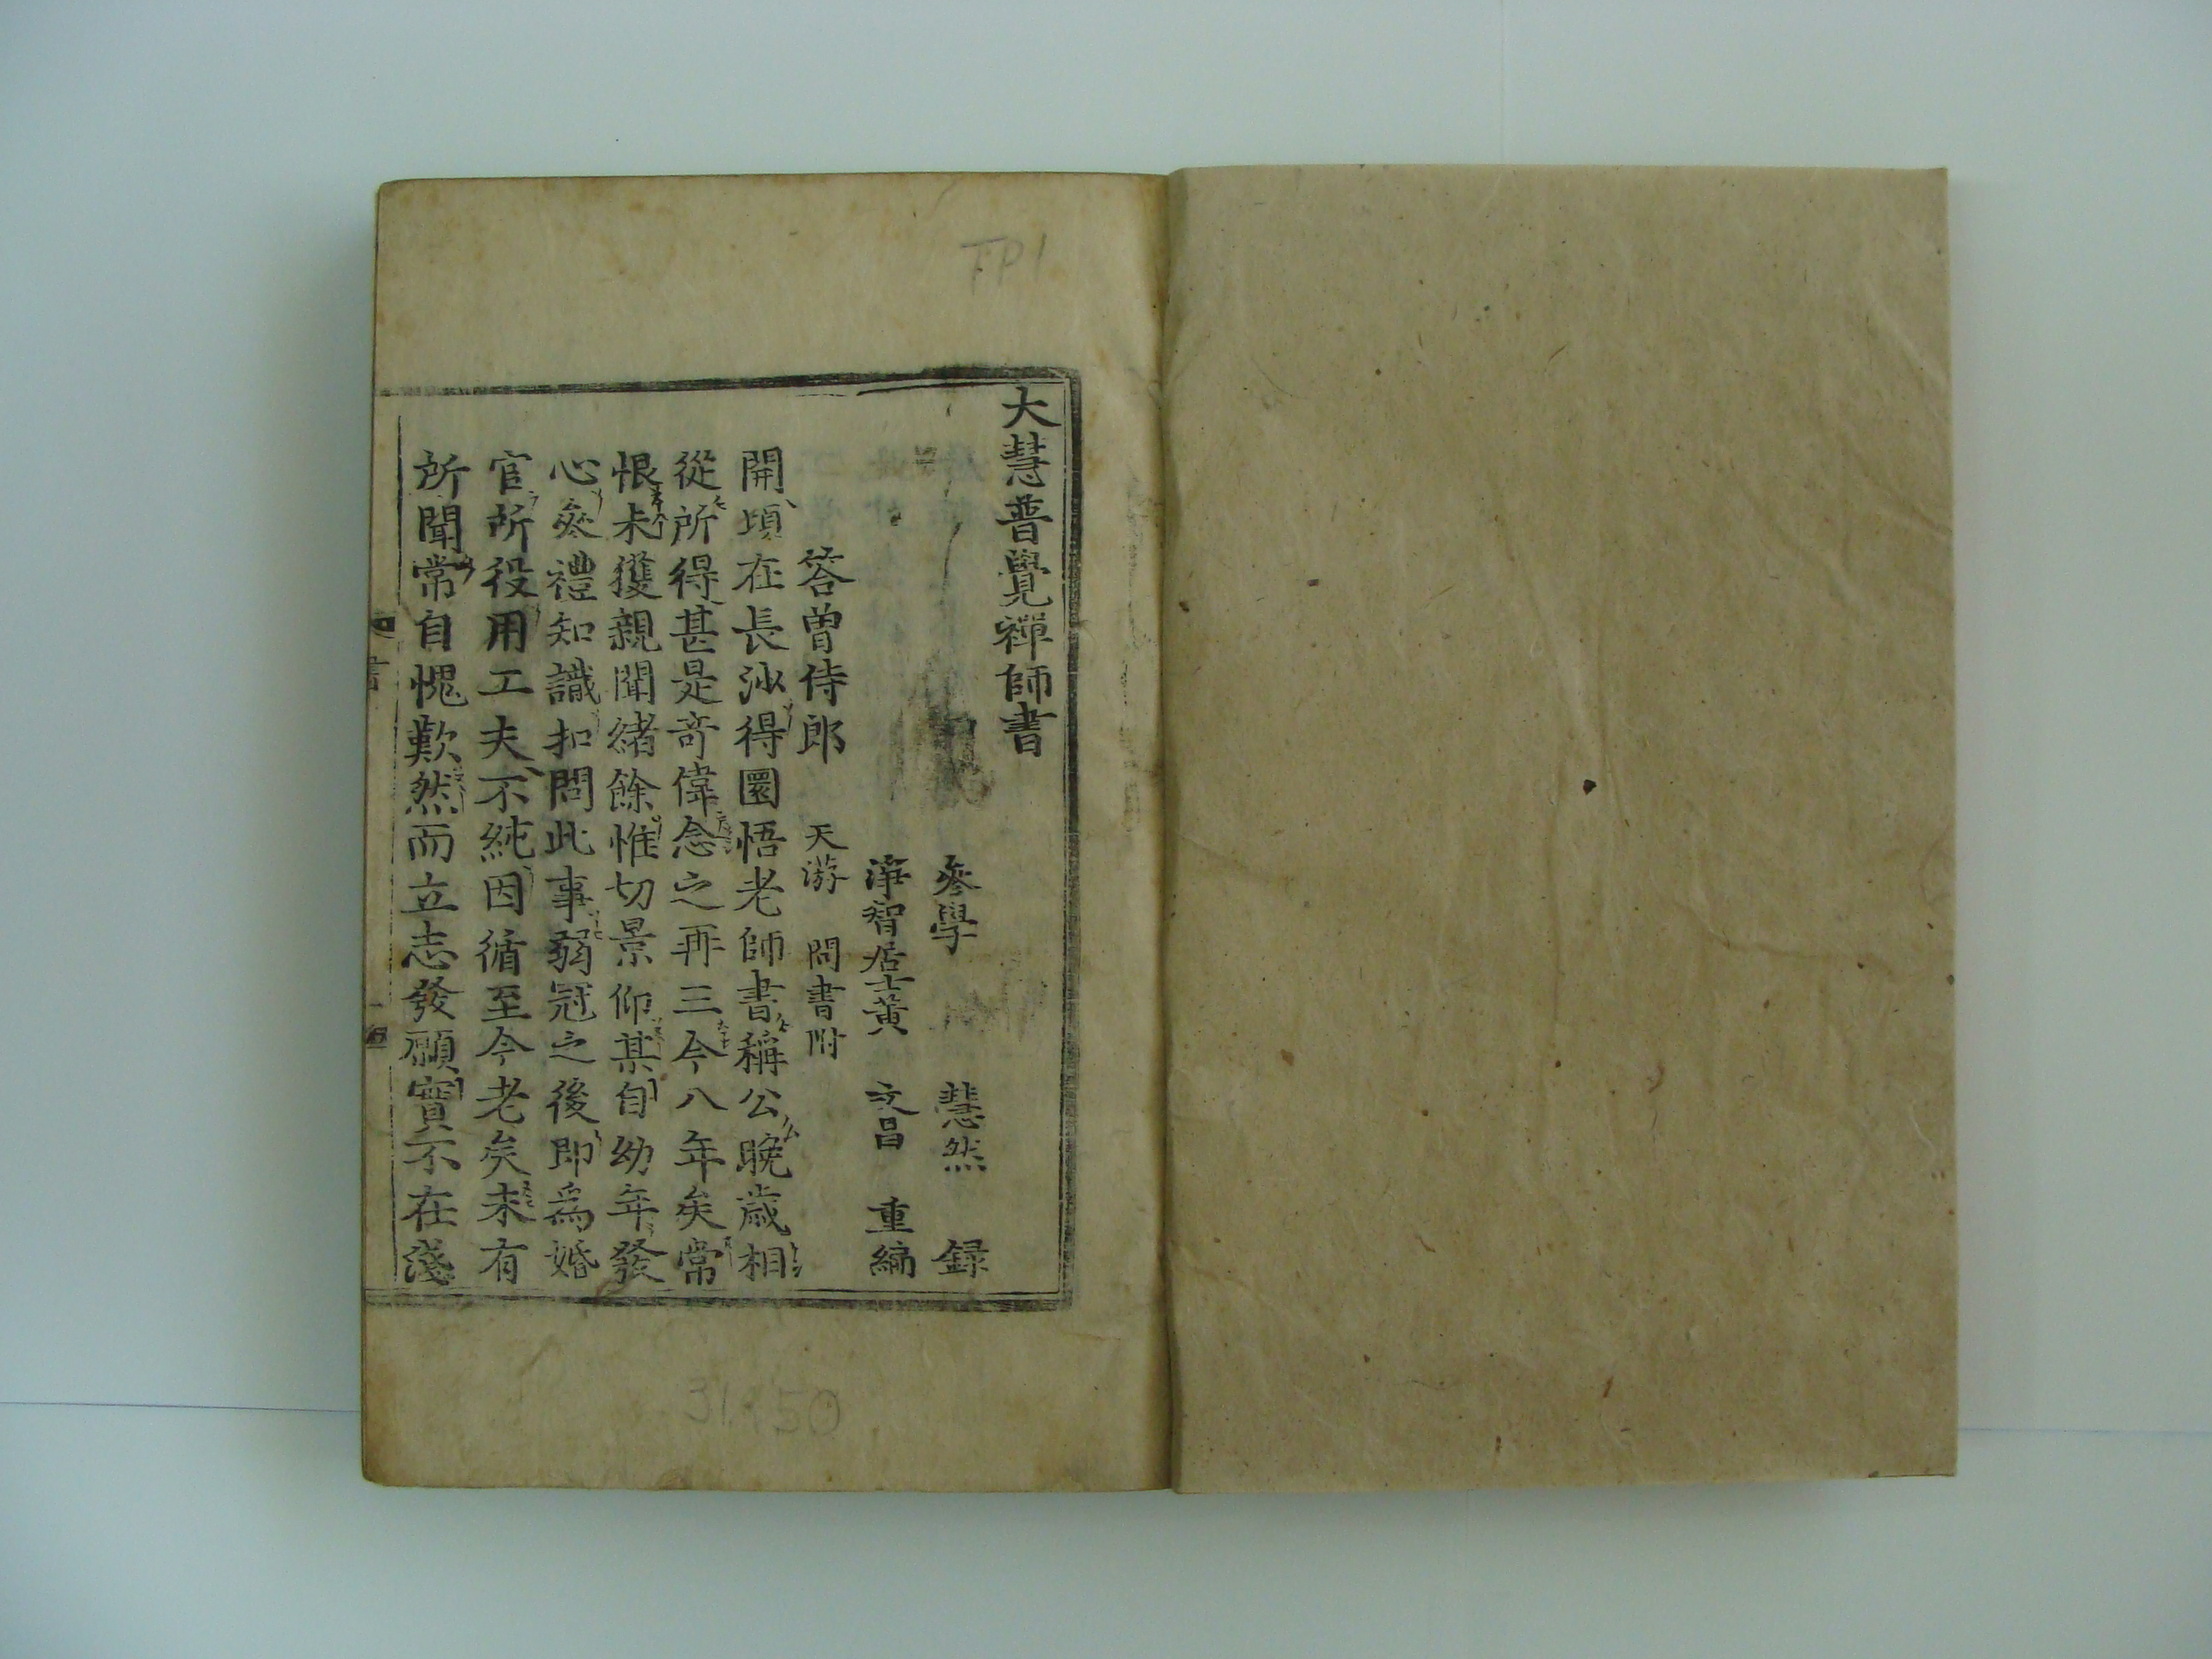 大慧普覺禪師書
參學 慧然 録
淨智居士黃 文昌 重編
答曽侍郎 天游 問書附
開頃在長沙得圜悟老師書稱公晩歳相
從所得甚是竒偉念之再三今八年矣常
恨未獲親聞緒餘惟切景仰某自幼年發
心叅禮知識扣問此事弱冠之後即爲婚
官所役用工夫不純因循至今老矣未有
所聞常自愧歎然而立志發願實不在淺
書
FP1